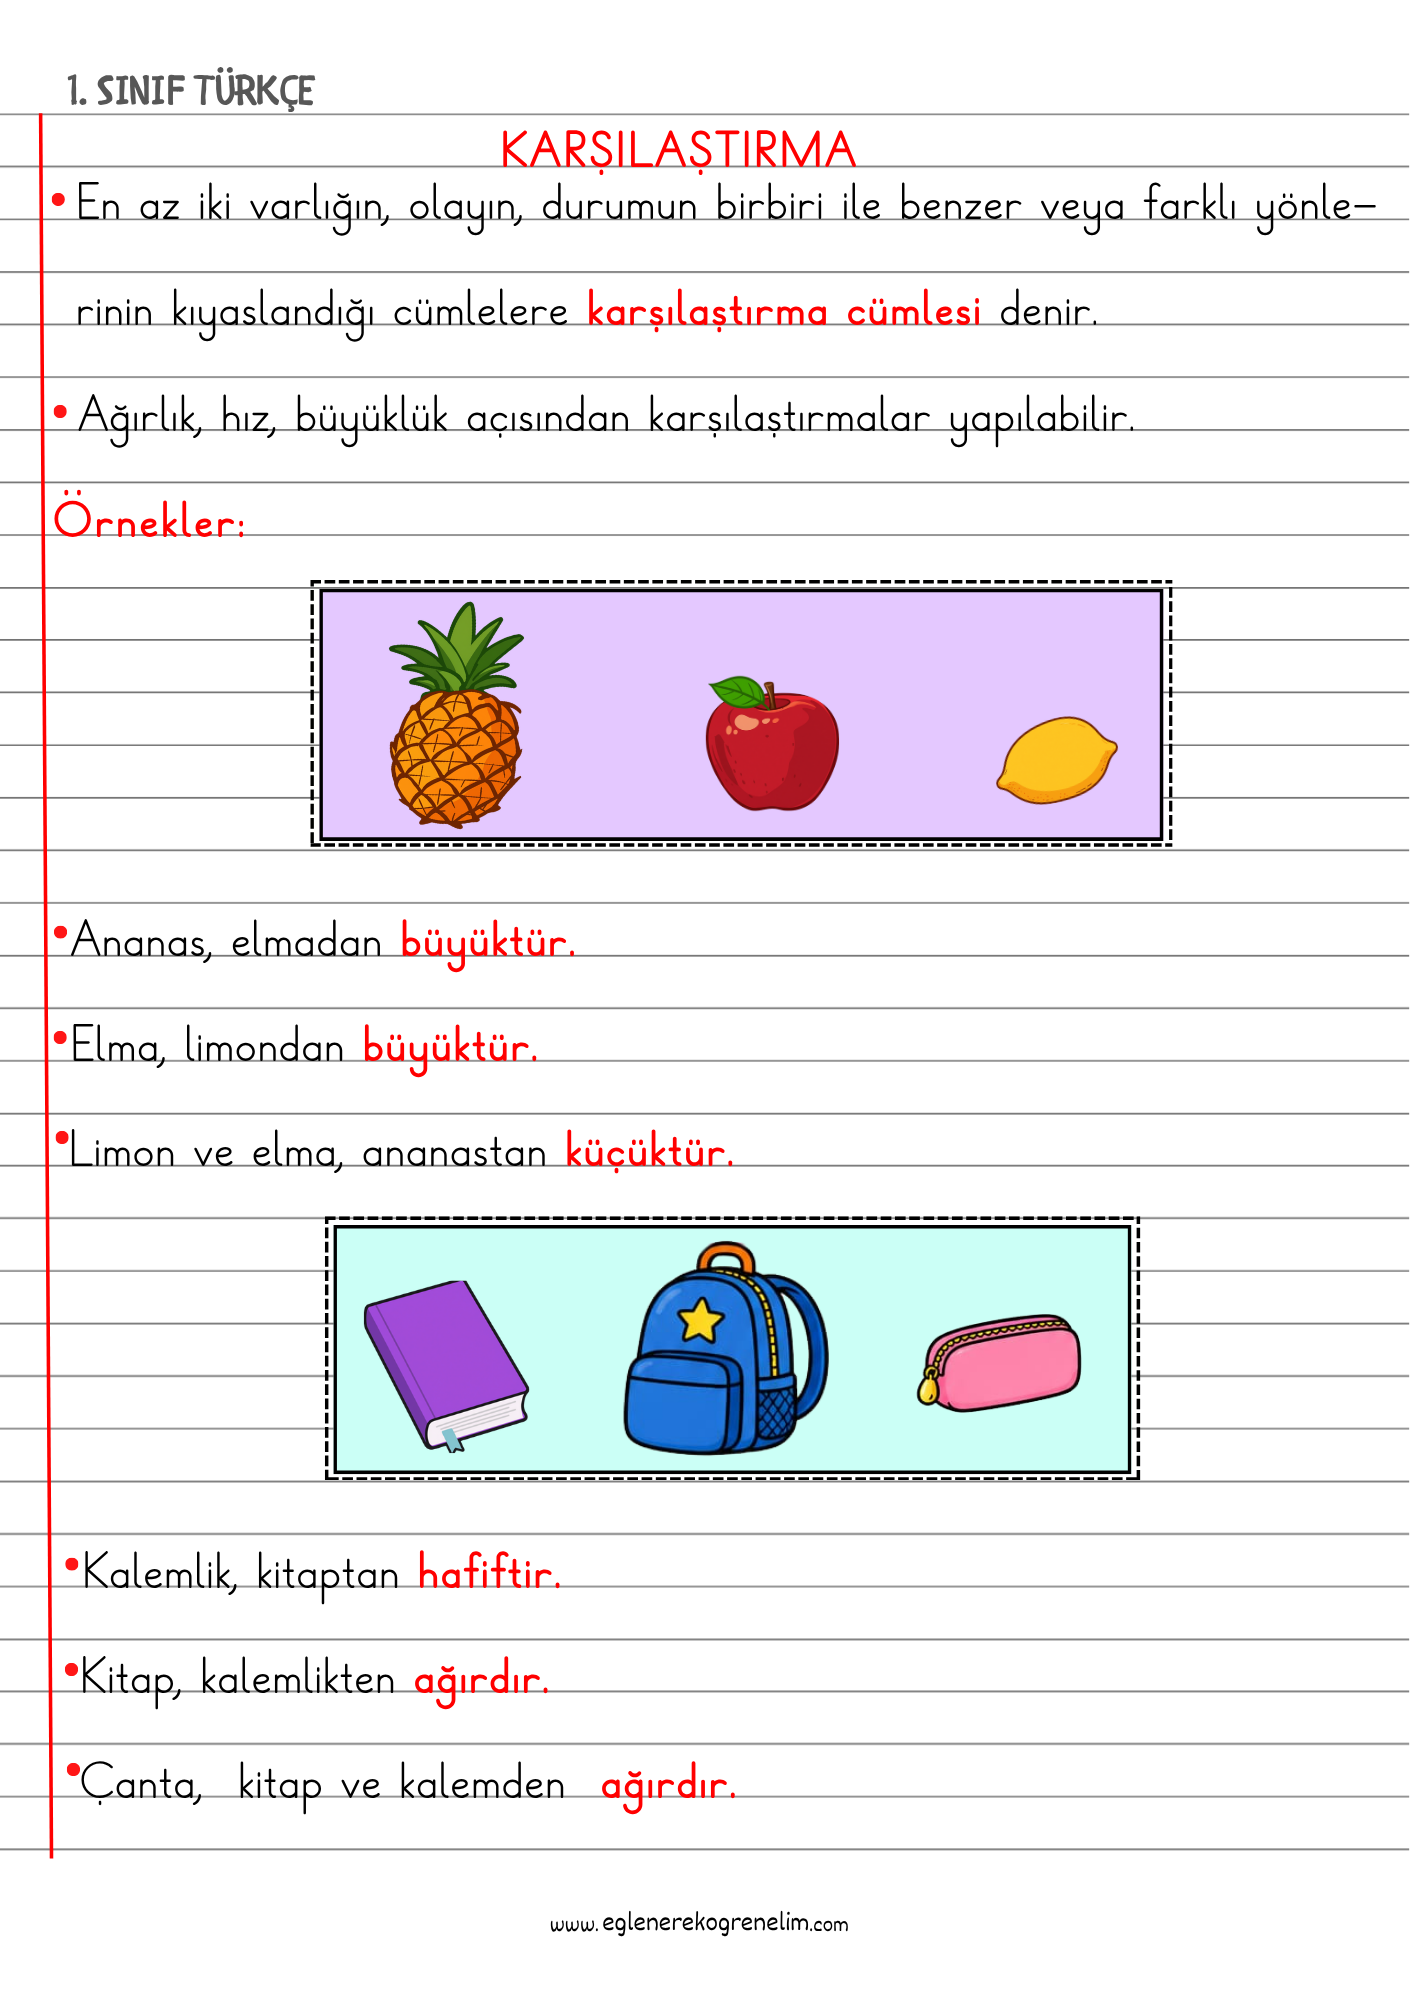 1. SINIF TÜRKÇE
KARŞILAŞTIRMA
• En az iki varlığın, olayın, durumun birbiri ile benzer veya farklı yönle-
rinin kıyaslandığı cümlelere karşılaştırma cümlesi denir.
• Ağırlık, hız, büyüklük açısından karşılaştırmalar yapılabilir.
Örnekler:
• Ananas, elmadan büyüktür.
• Elma, limondan büyüktür.
• Limon ve elma, ananastan küçüktür.
• Kalemlik, kitaptan hafiftir.
• Kitap, kalemlikten ağırdır.
• Çanta, kitap ve kalemden ağırdır.
www.eglenerekogrenelim.com